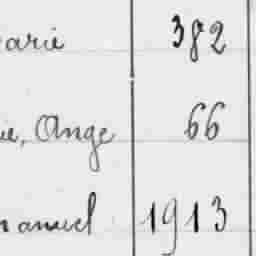 arie 382
ie, Ange 66
nanuel 1913